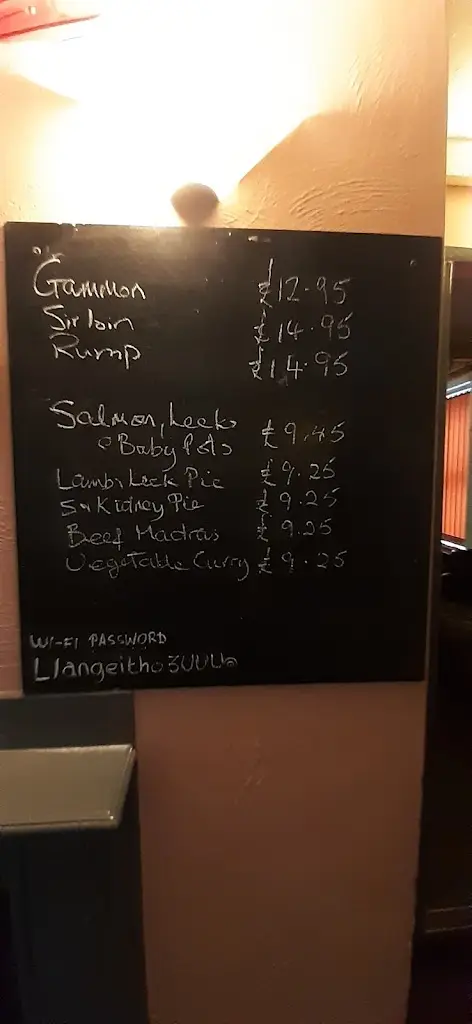 Gammon £12.95
Sirloin £14.95
Rump £14.95
Salmon, Leeks £9.45
& Baby Pots
Lamb, Leek Pie £9.25
S & Kidney Pie £9.25
Beef Madras £9.25
Vegetable Curry £9.25
WI-FI PASSWORD